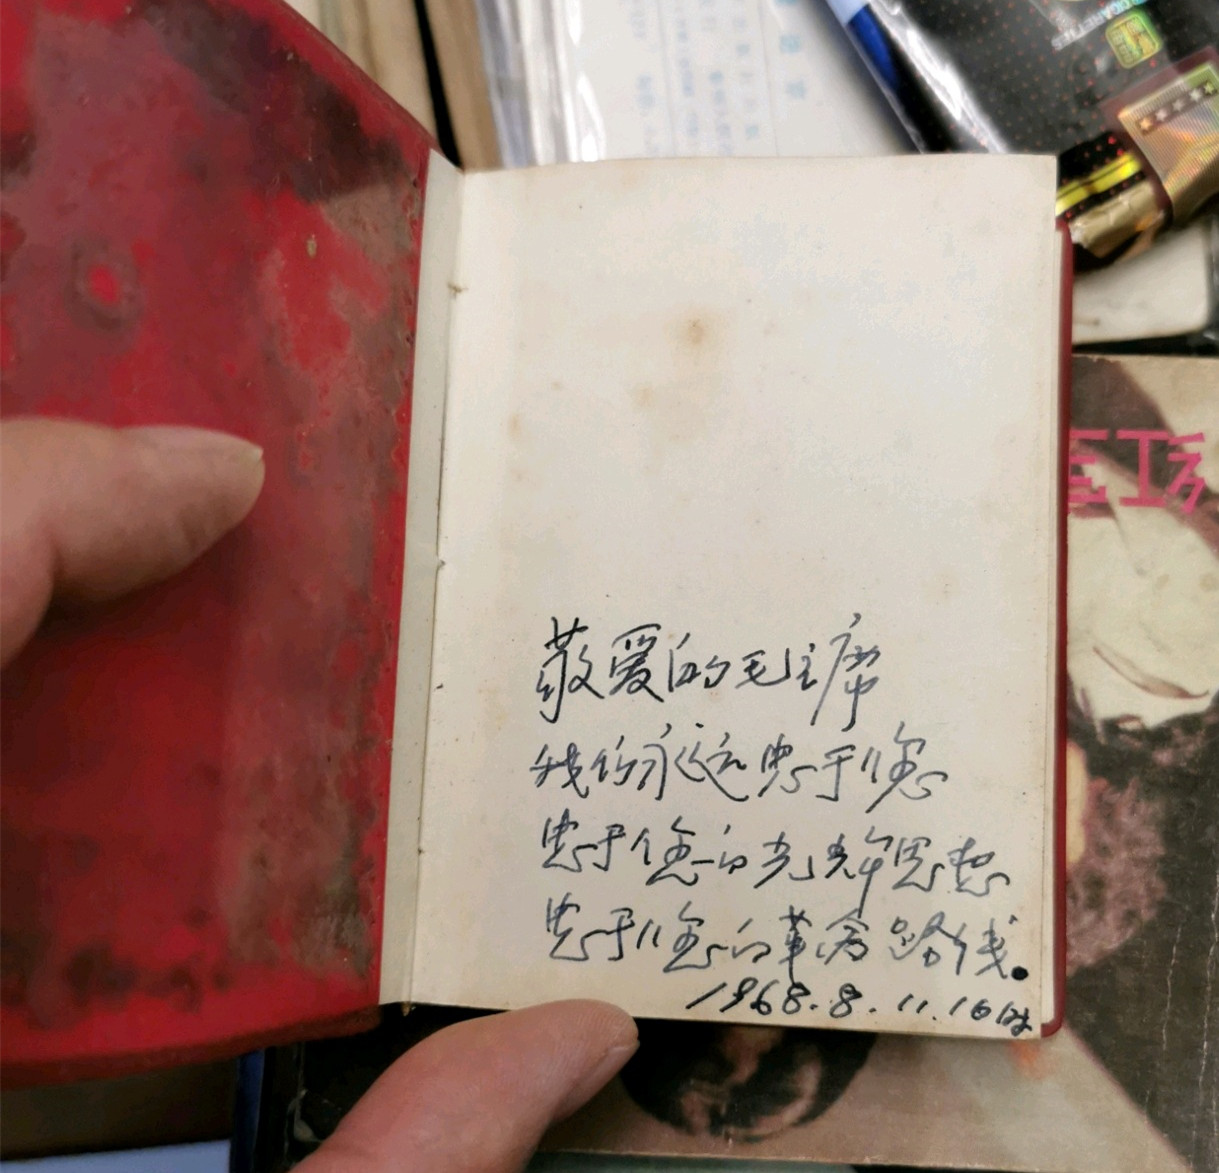 敬爱的毛主席
我们永远忠于您
忠于您的光辉思想
忠于您的革命路线.
1968.8.11.16时
CIGARETTES